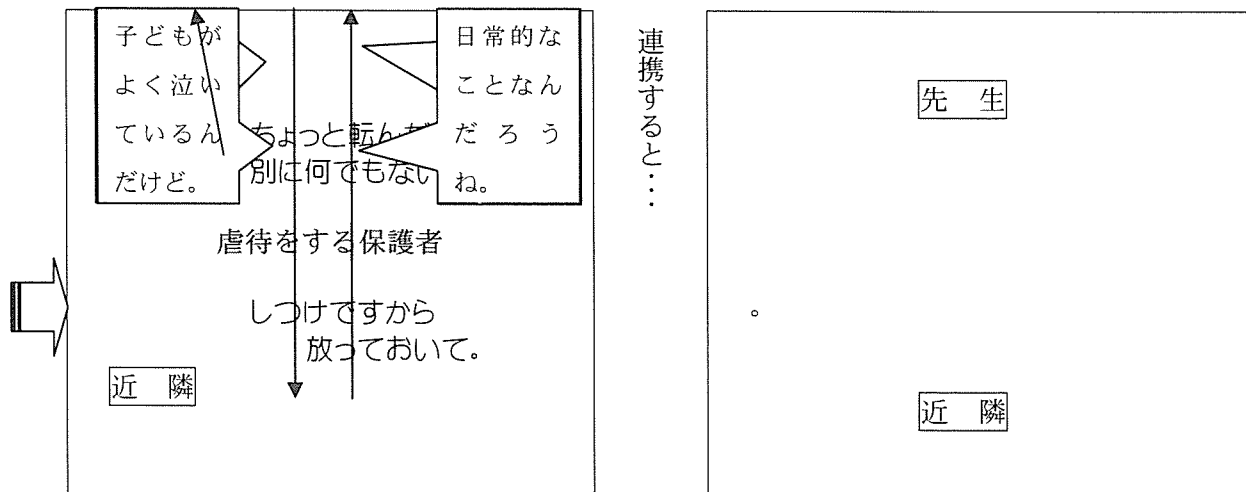 子どもが
よく泣い
ているん
だけど。
日常的な
ことなん
だろう
ね。
ちょっと転んだ
別に何でもない
虐待をする保護者
しつけですから
放っておいて。
近 隣
連携すると・・・
先 生
。
近 隣